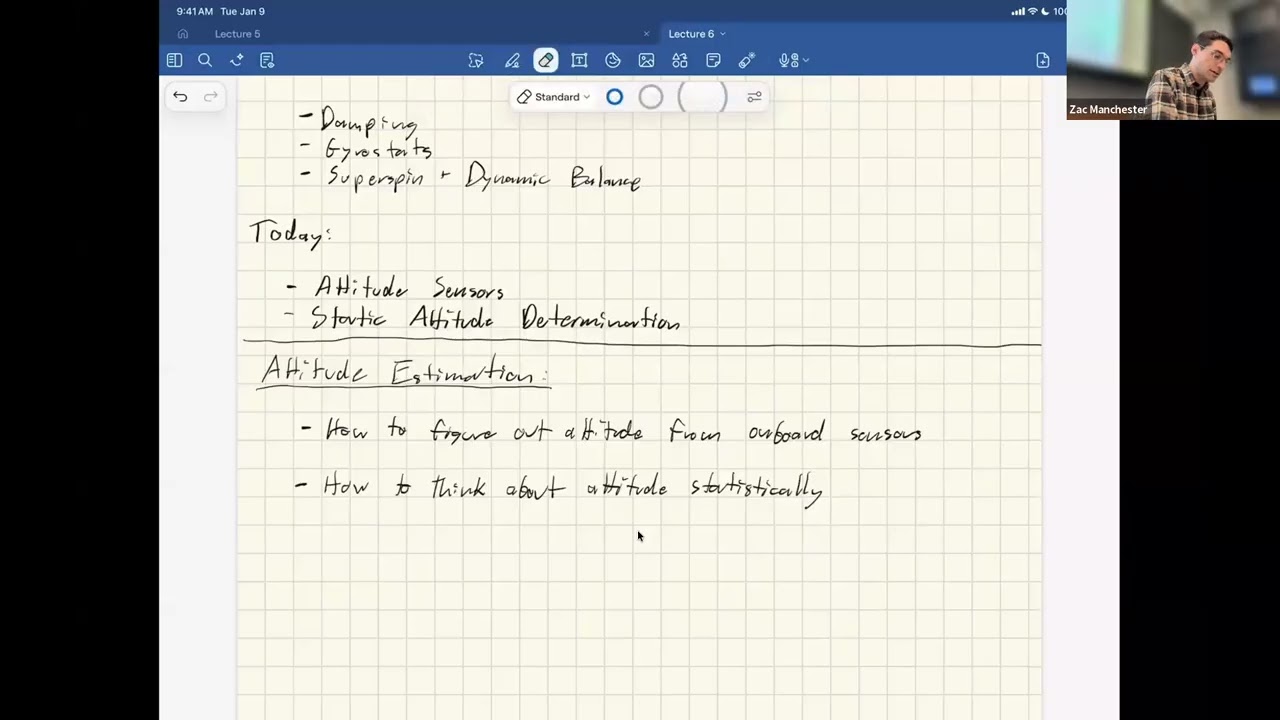 9:41 AM Tue Jan 9
100
Lecture 5
Lecture 6
Standard
Zac Manchester
- Damping
- Gyrostats
- Superspin + Dynamic Balance
Today:
- Attitude Sensors
- Static Attitude Determination
Attitude Estimation:
- How to figure out attitude from onboard sensors
- How to think about attitude statistically